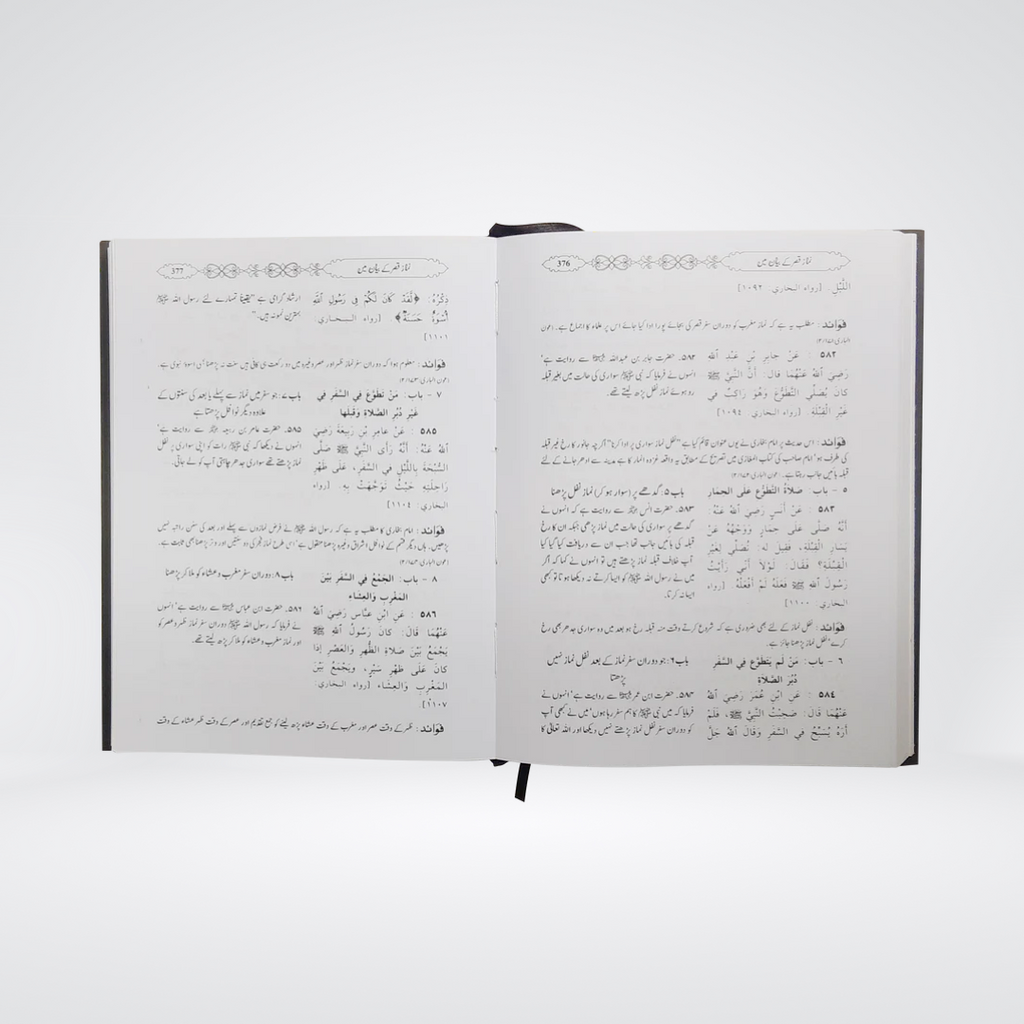 376
نماز قصر کے بیان میں
اللَّيْلِ. [رواه البخاري: ١٠٩٢]
فوائد: مطلب یہ ہے کہ نماز مغرب کو دوران سفر قصر کی بجائے پورا ادا کیا جائے اس پر علماء کا اجماع ہے۔ (عون
الباری:
٥٨٢ : عَنْ جابِرِ بْنِ عَبْدِ اللهِ
رَضِيَ اللهُ عَنْهُمَا قالَ: أَنَّ النَّبِيَّ ﷺ
كانَ يُصَلِّي التَّطَوُّعَ وَهُوَ رَاكِبٌ في
غَيْرِ الْقِبْلَةِ. [رواه البخاري: ١٠٩٤]
۵۸۲۔ حضرت جابر بن عبداللہ سے روایت ہے'
انہوں نے فرمایا کہ نبی ﷺ سواری کی حالت میں بغیر قبلہ
رو ہوئے نماز نفل پڑھ لیتے تھے۔
فوائد: اس حدیث پر امام بخاری نے یوں عنوان قائم کیا ہے "نفل نماز سواری پر ادا کرنا" اگرچہ جانور کا رخ غیر قبلہ
کی طرف ہو' امام صاحب کی کتاب المغازی میں تصریح کے مطابق یہ واقعہ غزوہ انمار کا ہے مدینہ سے ادھر جانے کے لئے
قبلہ بائیں جانب رہتا ہے۔
٥ - باب: صَلاَةُ التَّطَوُّعِ عَلَى الحِمَارِ
باب ۵: گدھے پر (سوار ہو کر) نماز نفل پڑھنا
٥٨٣ : عَنْ أَنَسٍ رَضِيَ اللهُ عَنْهُ:
أَنَّهُ صَلَّى عَلَى حِمَارٍ وَوَجْهُهُ عَنْ
يَسَارِ الْقِبْلَةِ، فَقِيلَ لَهُ: تُصَلِّي لِغَيْرِ
الْقِبْلَةِ؟ فَقَالَ: لَوْلاَ أَنِّي رَأَيْتُ
رَسُولَ اللهِ ﷺ فَعَلَهُ لَمْ أَفْعَلْهُ. [رواه
البخاري: ١١٠٠]
۵۸۳۔ حضرت انس سے روایت ہے کہ انہوں نے
گدھے پر سواری کی حالت میں نماز پڑھی جبکہ ان کا رخ
قبلہ کی بائیں جانب تھا جب ان سے دریافت کیا گیا کیا
آپ خلاف قبلہ نماز پڑھتے ہیں تو انہوں نے کہا کہ اگر
میں نے رسول اللہ ﷺ کو ایسا کرتے نہ دیکھا ہوتا تو کبھی
ایسا نہ کرتا۔
فوائد: نفل نماز کے لئے بھی ضروری ہے کہ شروع کرتے وقت منہ قبلہ رخ ہو بعد میں وہ سواری جدھر بھی رخ
کرے' نفل نماز پڑھنا جائز ہے۔
٦ - باب: مَنْ لَم يَتَطَوَّع فِي السَّفَرِ
دُبُرَ الصَّلاَة
باب ۶: جو دوران سفر نماز کے بعد نفل نماز نہیں
پڑھتا
٥٨٤ : عَنِ ابْنِ عُمَرَ رَضِيَ اللهُ
عَنْهُمَا قَالَ: صَحِبْتُ النَّبِيَّ ﷺ، فَلَمْ
أَرَهُ يُسَبِّحُ في السَّفَرِ وَقَالَ اللهُ جَلَّ
۵۸۴۔ حضرت ابن عمر سے روایت ہے' انہوں نے
فرمایا کہ میں نبی ﷺ کا ہم سفر رہا ہوں' میں نے کبھی آپ
کو دوران سفر نفل نماز پڑھتے نہیں دیکھا اور اللہ تعالیٰ کا
377
نماز قصر کے بیان میں
ذِكْرُهُ: ﴿لَّقَدْ كَانَ لَكُمْ فِي رَسُولِ اللَّهِ
أُسْوَةٌ حَسَنَةٌ﴾. [رواه البخاري:
١١٠١]
ارشاد گرامی ہے "یقیناً تمہارے لئے رسول اللہ ﷺ
بہترین نمونہ ہیں۔"
فوائد: معلوم ہوا کہ دوران سفر نماز ظہر اور عصر وغیرہ میں دو رکعت ہی کافی ہیں سنت نہ پڑھنا ہی اسوۂ نبوی ہے۔
(عون الباری:
٧ - باب: مَنْ تَطَوَّعَ فِي السَّفَرِ فِي
غَيْرِ دُبُرِ الصَّلاَةِ وَقَبْلَهَا
باب ۷: جو سفر میں نماز سے پہلے یا بعد کی سنتوں کے
علاوہ دیگر نوافل پڑھتا ہے
٥٨٥ : عَنْ عامِرِ بْنِ رَبِيعَةَ رَضِيَ
اللهُ عَنْهُ: أَنَّهُ رَأَى النَّبِيَّ ﷺ صَلَّى
السُّبْحَةَ بِاللَّيْلِ في السَّفَرِ، عَلَى ظَهْرِ
رَاحِلَتِهِ حَيْثُ تَوَجَّهَتْ بِهِ. [رواه
البخاري: ١١٠٤]
۵۸۵۔ حضرت عامر بن ربیعہ سے روایت ہے'
انہوں نے دیکھا کہ نبی ﷺ رات کو اپنی سواری پر نفل
نماز پڑھتے تھے سواری جدھر چاہتی آپ کو لے جاتی۔
فوائد: امام بخاری کا مطلب یہ ہے کہ رسول اللہ ﷺ نے فرض نمازوں سے پہلے اور بعد کی سنن راتبہ نہیں
پڑھیں۔ ہاں دیگر قسم کے نوافل اشراق وغیرہ پڑھنا منقول ہے' اس طرح نماز فجر کی دو سنتیں اور وتر پڑھنا بھی ثابت ہے۔
(عون الباری:
٨ - باب: الجَمْعُ فِي السَّفَرِ بَيْنَ
المَغْرِبِ وَالعِشَاءِ
باب ۸: دوران سفر مغرب و عشاء کو ملا کر پڑھنا
٥٨٦ : عَنِ ابْنِ عَبَّاسٍ رَضِيَ اللهُ
عَنْهُمَا قَالَ: كانَ رَسُولُ اللهِ ﷺ
يَجْمَعُ بَيْنَ صَلاَةِ الظُّهْرِ وَالْعَصْرِ إِذَا
كانَ عَلَى ظَهْرِ سَيْرٍ، وَيَجْمَعُ بَيْنَ
المَغْرِبِ وَالْعِشَاءِ. [رواه البخاري:
١١٠٧]
۵۸۶۔ حضرت ابن عباس سے روایت ہے' انہوں
نے فرمایا کہ رسول اللہ ﷺ دوران سفر نماز ظہر و عصر کو
اور نماز مغرب و عشاء کو ملا کر پڑھ لیتے تھے۔
فوائد: ظہر کے وقت عصر اور مغرب کے وقت عشاء پڑھ لینے کو جمع تقدیم اور عصر کے وقت ظہر عشاء کے وقت